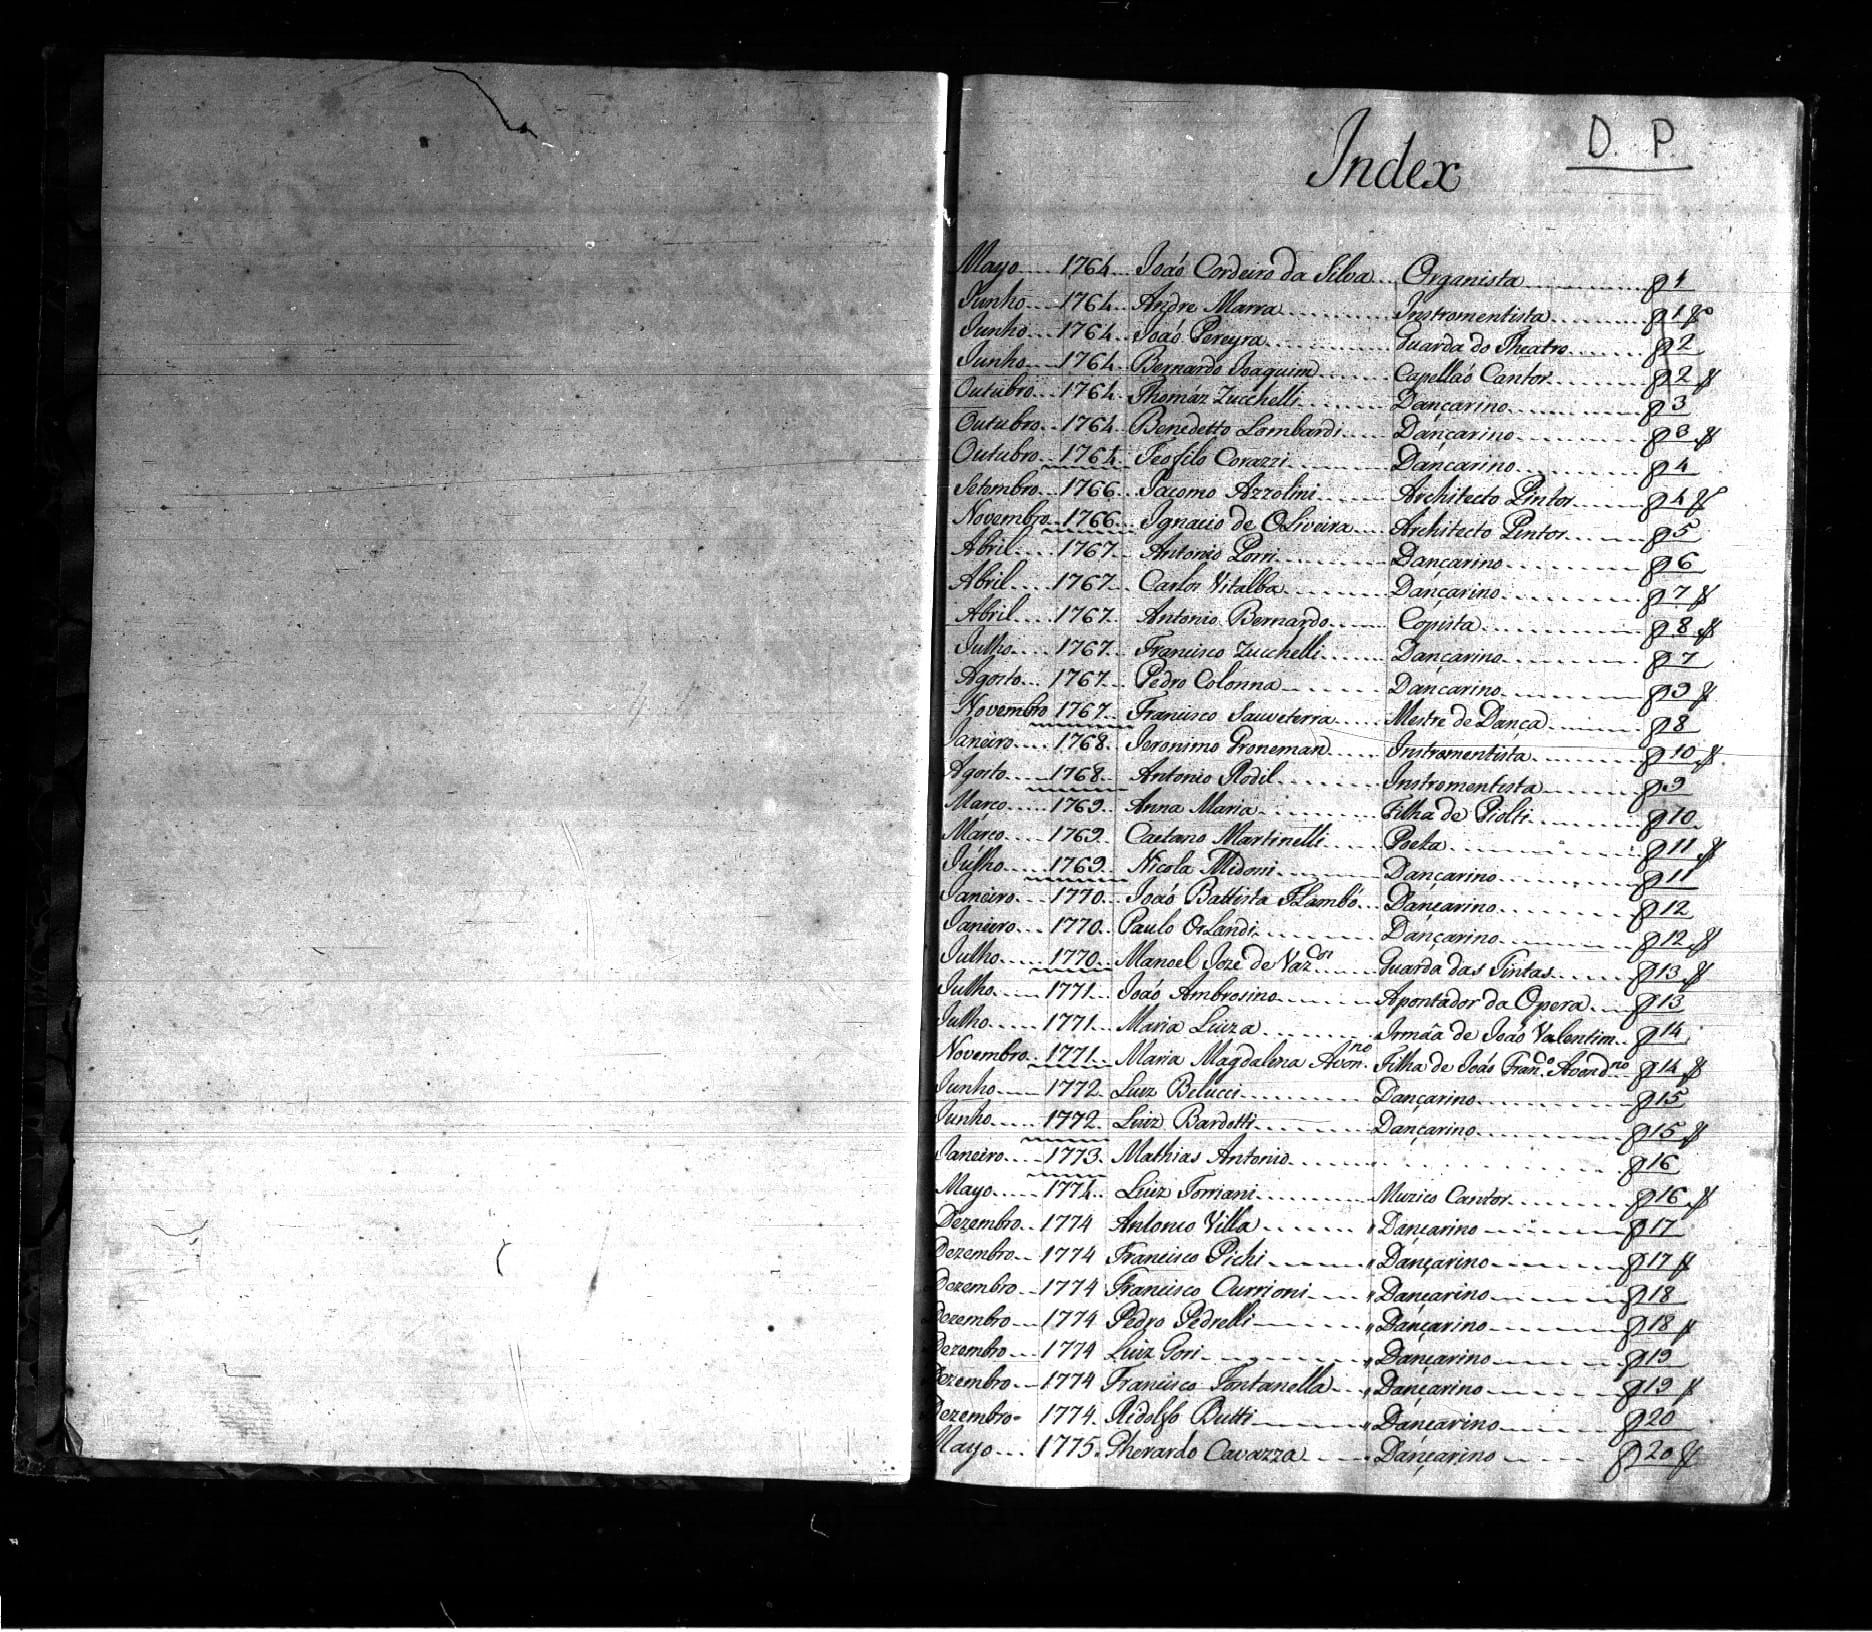 D. P.
Index
Mayo 1764 Joaó Cordeiro da Silva Organista f 1
Junho 1764 Andre Marra Instromentista f 1 v
Junho 1764 Joaó Pereyra Guarda do Theatro f 2
Junho 1764 Bernardo Joaquim Capellaó Cantor f 2 v
Outubro 1764 Thomáz Zucchelli Dançarino f 3
Outubro 1764 Benedetto Lombardi Dançarino f 3 v
Outubro 1764 Teofilo Corazzi Dançarino f 4
Setembro 1766 Jacomo Azzolini Architecto Pintor f 4 v
Novembro 1766 Ignacio de Oliveira Architecto Pintor f 5
Abril 1767 Antonio Porri Dançarino f 6
Abril 1767 Carlos Vitalba Dançarino f 7 v
Abril 1767 Antonio Bernardo Copista f 8 v
Julho 1767 Francisco Zucchelli Dançarino f 7
Agosto 1767 Pedro Colonna Dançarino f 9 v
Novembro 1767 Francisco Sauveterra Mestre de Dança f 8
Janeiro 1768 Jeronimo Groneman Instromentista f 10 v
Agosto 1768 Antonio Rodil Instromentista f 9
Março 1769 Anna Maria Filha de Piolti f 10
Março 1769 Caetano Martinelli Poeta f 11 v
Julho 1769 Nicola Midoni Dançarino f 11
Janeiro 1770 Joaó Battista Flambó Dançarino f 12
Janeiro 1770 Paulo Orlandi Dançarino f 12 v
Julho 1770 Manoel Joze de Vaz.cos Guarda das Tintas f 13 v
Julho 1771 Joaó Ambrosino Apontador da Opera f 13
Julho 1771 Maria Luiza Irmãa de Joaó Valentim f 14
Novembro 1771 Maria Magdalena Aven.no Filha de Joaó Fran.co Avend.no f 14 v
Junho 1772 Luiz Belucci Dançarino f 15
Junho 1772 Luiz Bardotti Dançarino f 15 v
Janeiro 1773 Mathias Antonio f 16
Mayo 1774 Luiz Torriani Muzico Cantor f 16 v
Dezembro 1774 Antonio Villa Dançarino f 17
Dezembro 1774 Francisco Pichi Dançarino f 17 v
Dezembro 1774 Francisco Currioni Dançarino f 18
Dezembro 1774 Pedro Pedrelli Dançarino f 18 v
Dezembro 1774 Luiz Gori Dançarino f 19
Dezembro 1774 Francisco Fontanella Dançarino f 19 v
Dezembro 1774 Ridolfo Butti Dançarino f 20
Mayo 1775 Gherardo Cavazza Dançarino f 20 v